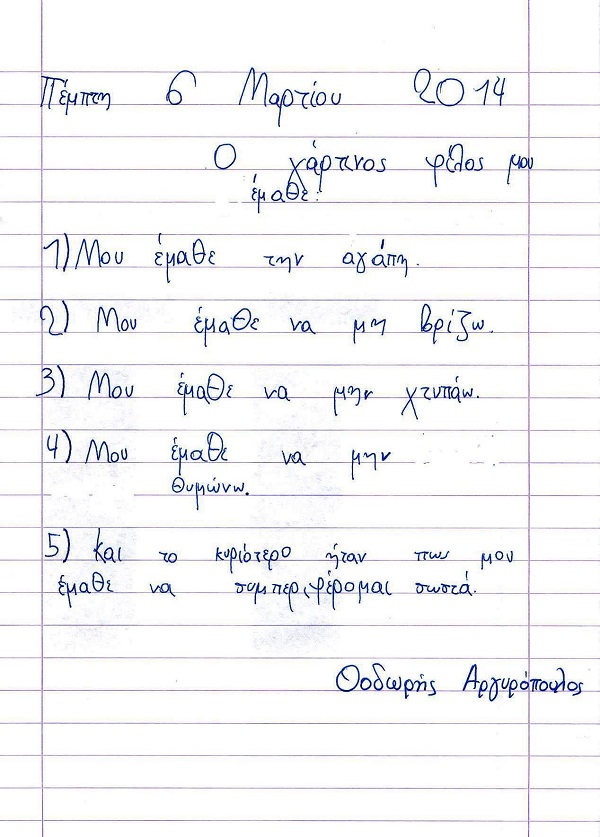 Πέμπτη 6 Μαρτίου 2014
Ο χάρτινος φίλος μου
έμαθε:
1) Μου έμαθε την αγάπη.
2) Μου έμαθε να μη βρίζω.
3) Μου έμαθε να μην χτυπάω.
4) Μου έμαθε να μην
θυμώνω.
5) Και το κυριότερο ήταν πως μου
έμαθε να συμπεριφέρομαι σωστά.
Θοδωρής Αργυρόπουλος